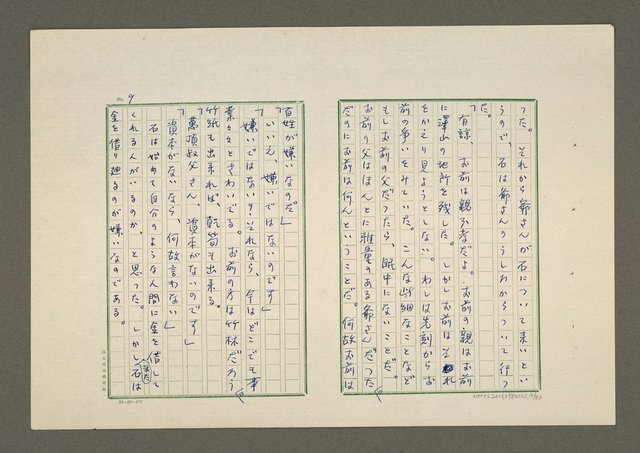 った。それから爺さんが石について来いとい
うので、石は爺さんのうしろからついて行つ
た。
「有諒、お前は親不孝だよ。お前の親はお前
に澤山の地所を残した。しかしお前はそれ
をかえり見ようとしない。わしは先刻からお
前の争いをみていた。こんな些細なことなど
もしお前の父だつたら、眼中にないことだ。
お前の父はほんとに雅量のある爺さんだつた
だのにお前は何んということだ。何故お前は
百姓が嫌いなのだ」
「いいえ、嫌いではないのです」
「嫌いではない？それなら、今はどこでも事
業々々とさわいでる。お前の方は竹林だろう
竹紙も出来れば、乾筍も出来る。
「萬項叔父さん、資本がないのです」
「資本がないなら、何故言わない」
石は始めて自分のような人間に金を借して
くれる人がいるのか、と思つた。しかし石はまた
金を借り廻るのが嫌いなのである。
No. 9
NMYL20060980002